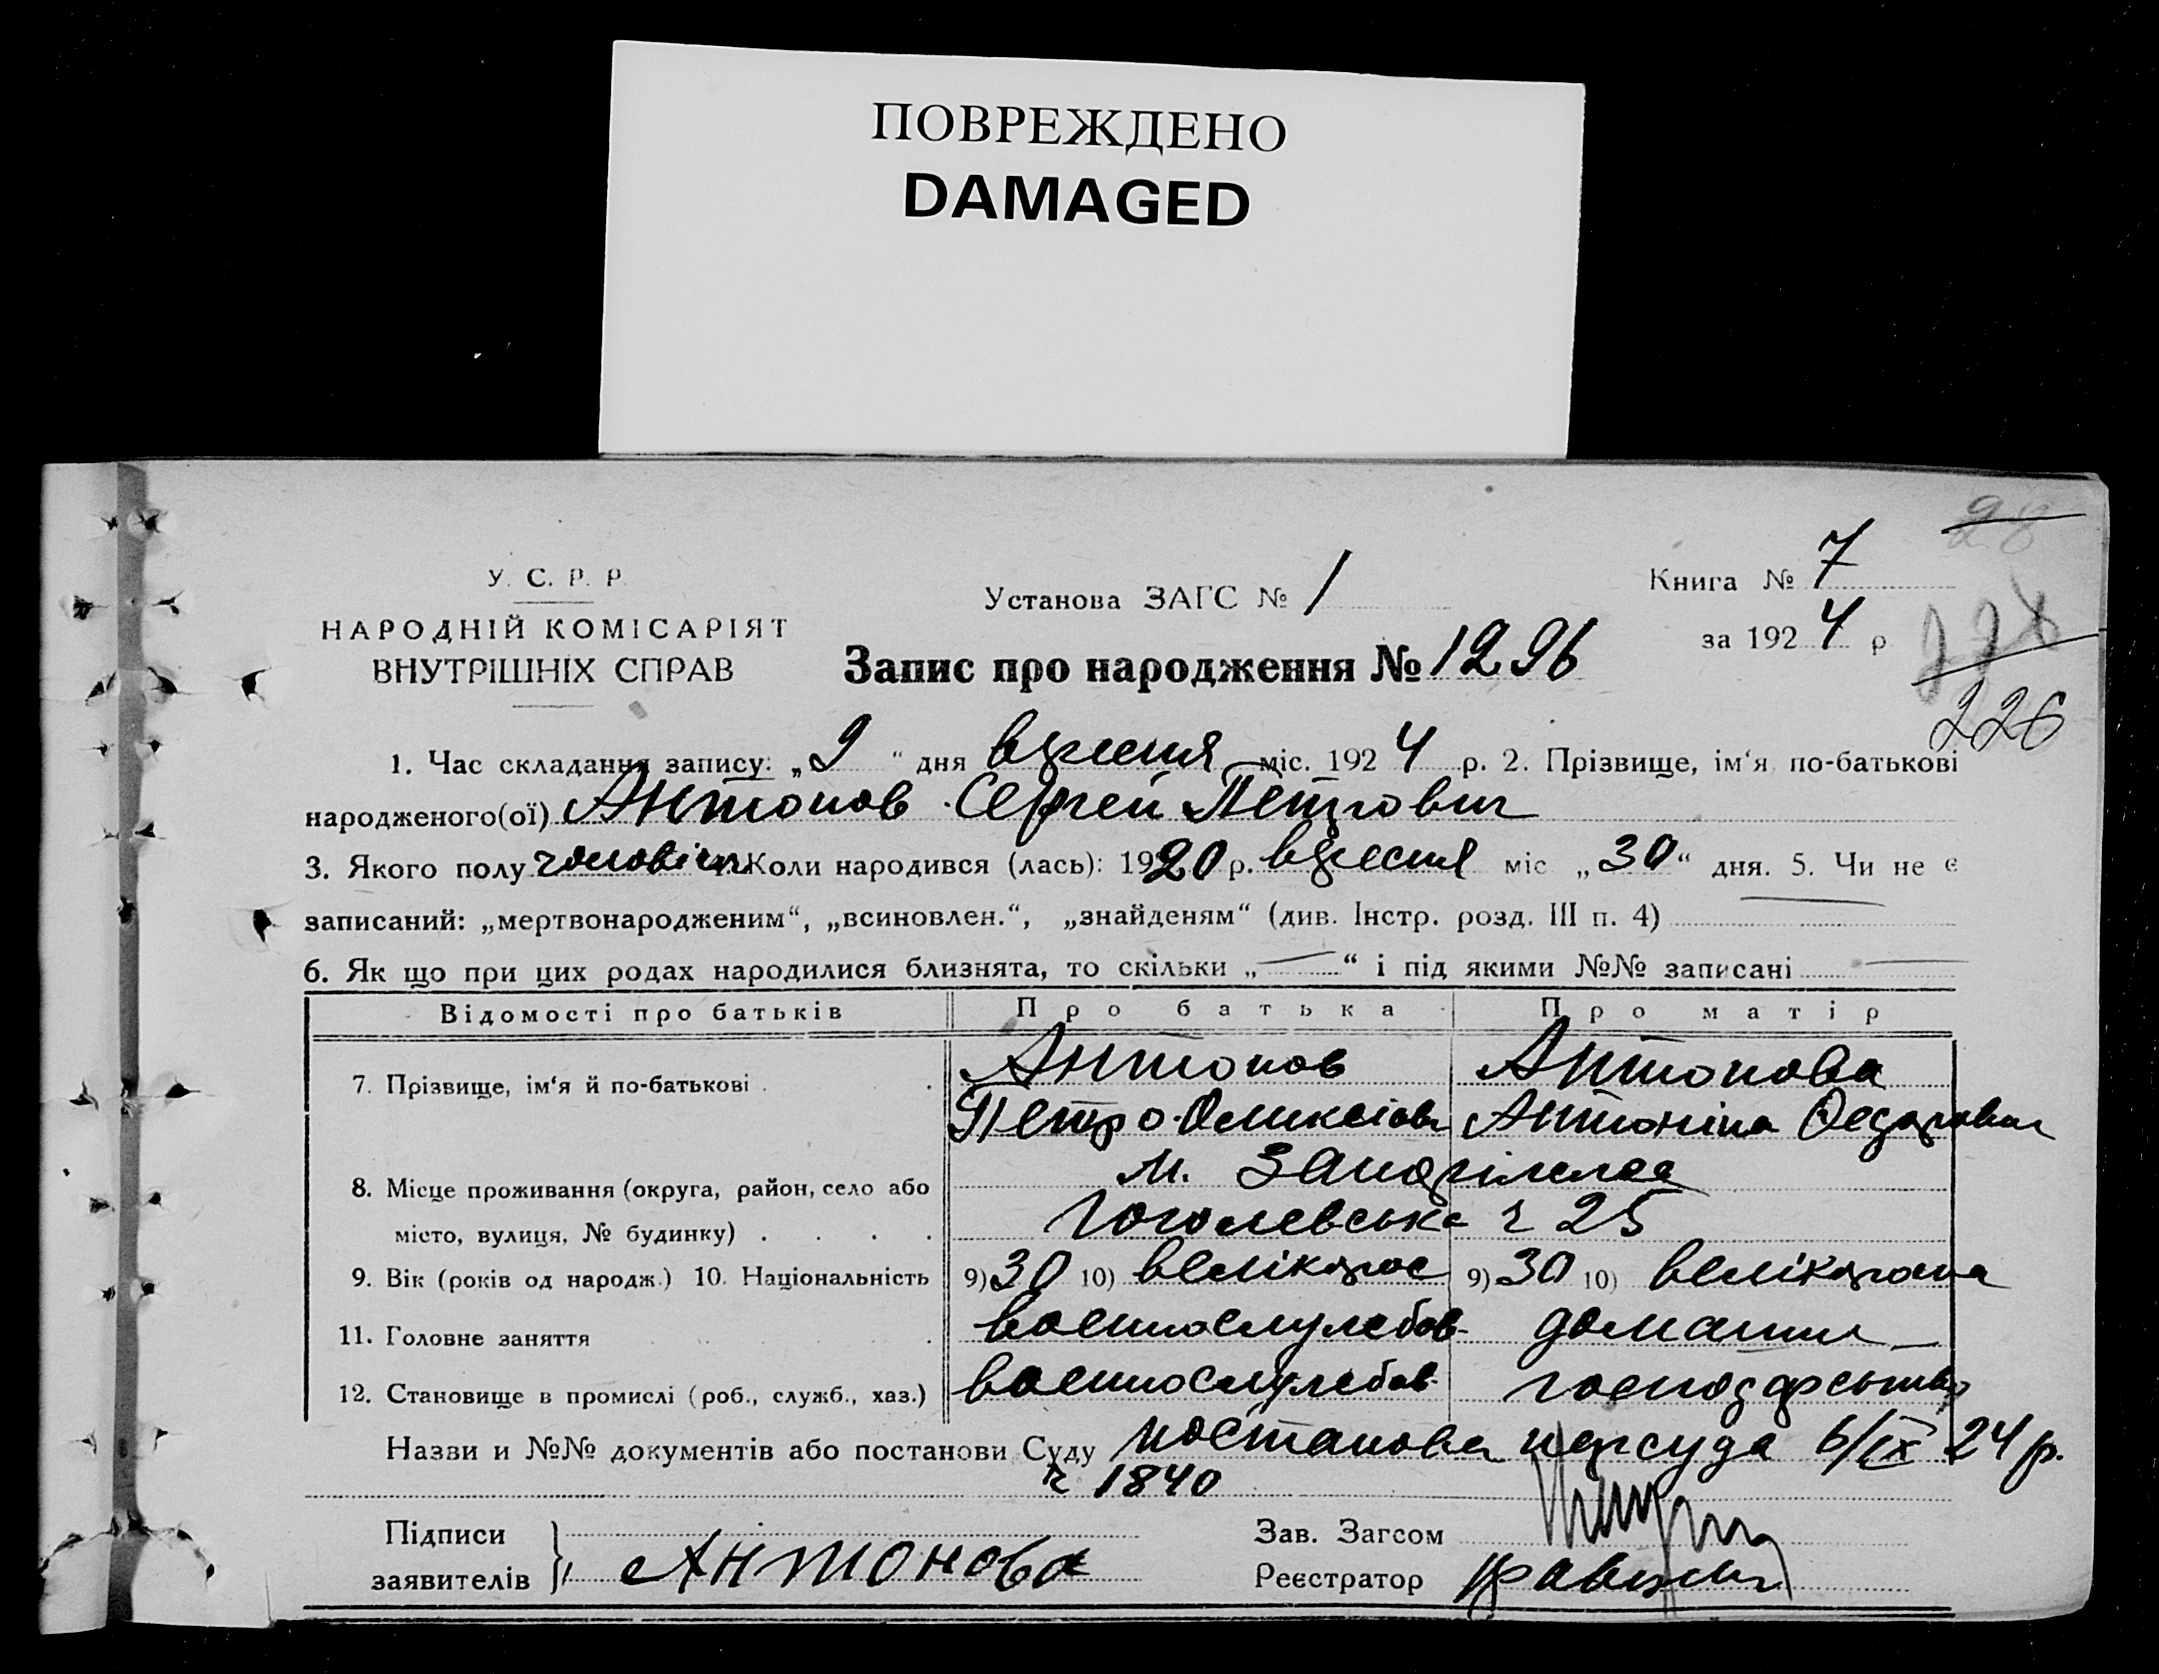 ПОВРЕЖДЕНО
DAMAGED
28
У. С. Р. Р.
НАРОДНІЙ КОМІСАРІЯТ
ВНУТРІШНІХ СПРАВ
Установа ЗАГС № 1
Книга № 7
за 1924 р
226
Запис про народження № 1296
1. Час складання запису: „9“ дня вересня міс. 1924 р. 2. Прізвище, ім'я по-батькові
народженого(ої) Антонов Сергей Петрович
3. Якого полу чоловіч Коли народився (лась): 1920 р. вересня міс „30“ дня. 5. Чи не є
записаний: „мертвонародженим“, „всиновлен.“, „знайденям“ (див. Інстр. розд. III п. 4)
6. Як що при цих родах народилися близнята, то скільки „—“ і під якими №№ записані —
Відомості про батьків Про батька Про матір
7. Прізвище, ім'я й по-батькові Антонов Антонова
Петро Олексіов Антоніна
8. Місце проживання (округа, район, село або м. Запоріжжя
місто, вулиця, № будинку) Гоголевська ч 25
9. Вік (років од народж.) 10. Національність 9) 30 10) велікорос 9) 30 10) велікороска
11. Головне заняття военнослужбов- домашн
12. Становище в промислі (роб., служб., хаз.) военнослужбов- господарство
Назви и №№ документів або постанови Суду постанова нарсуда 6/IX 24 р.
ч 1840
Підписи
заявителів Антонова
Зав. Загсом
Реєстратор